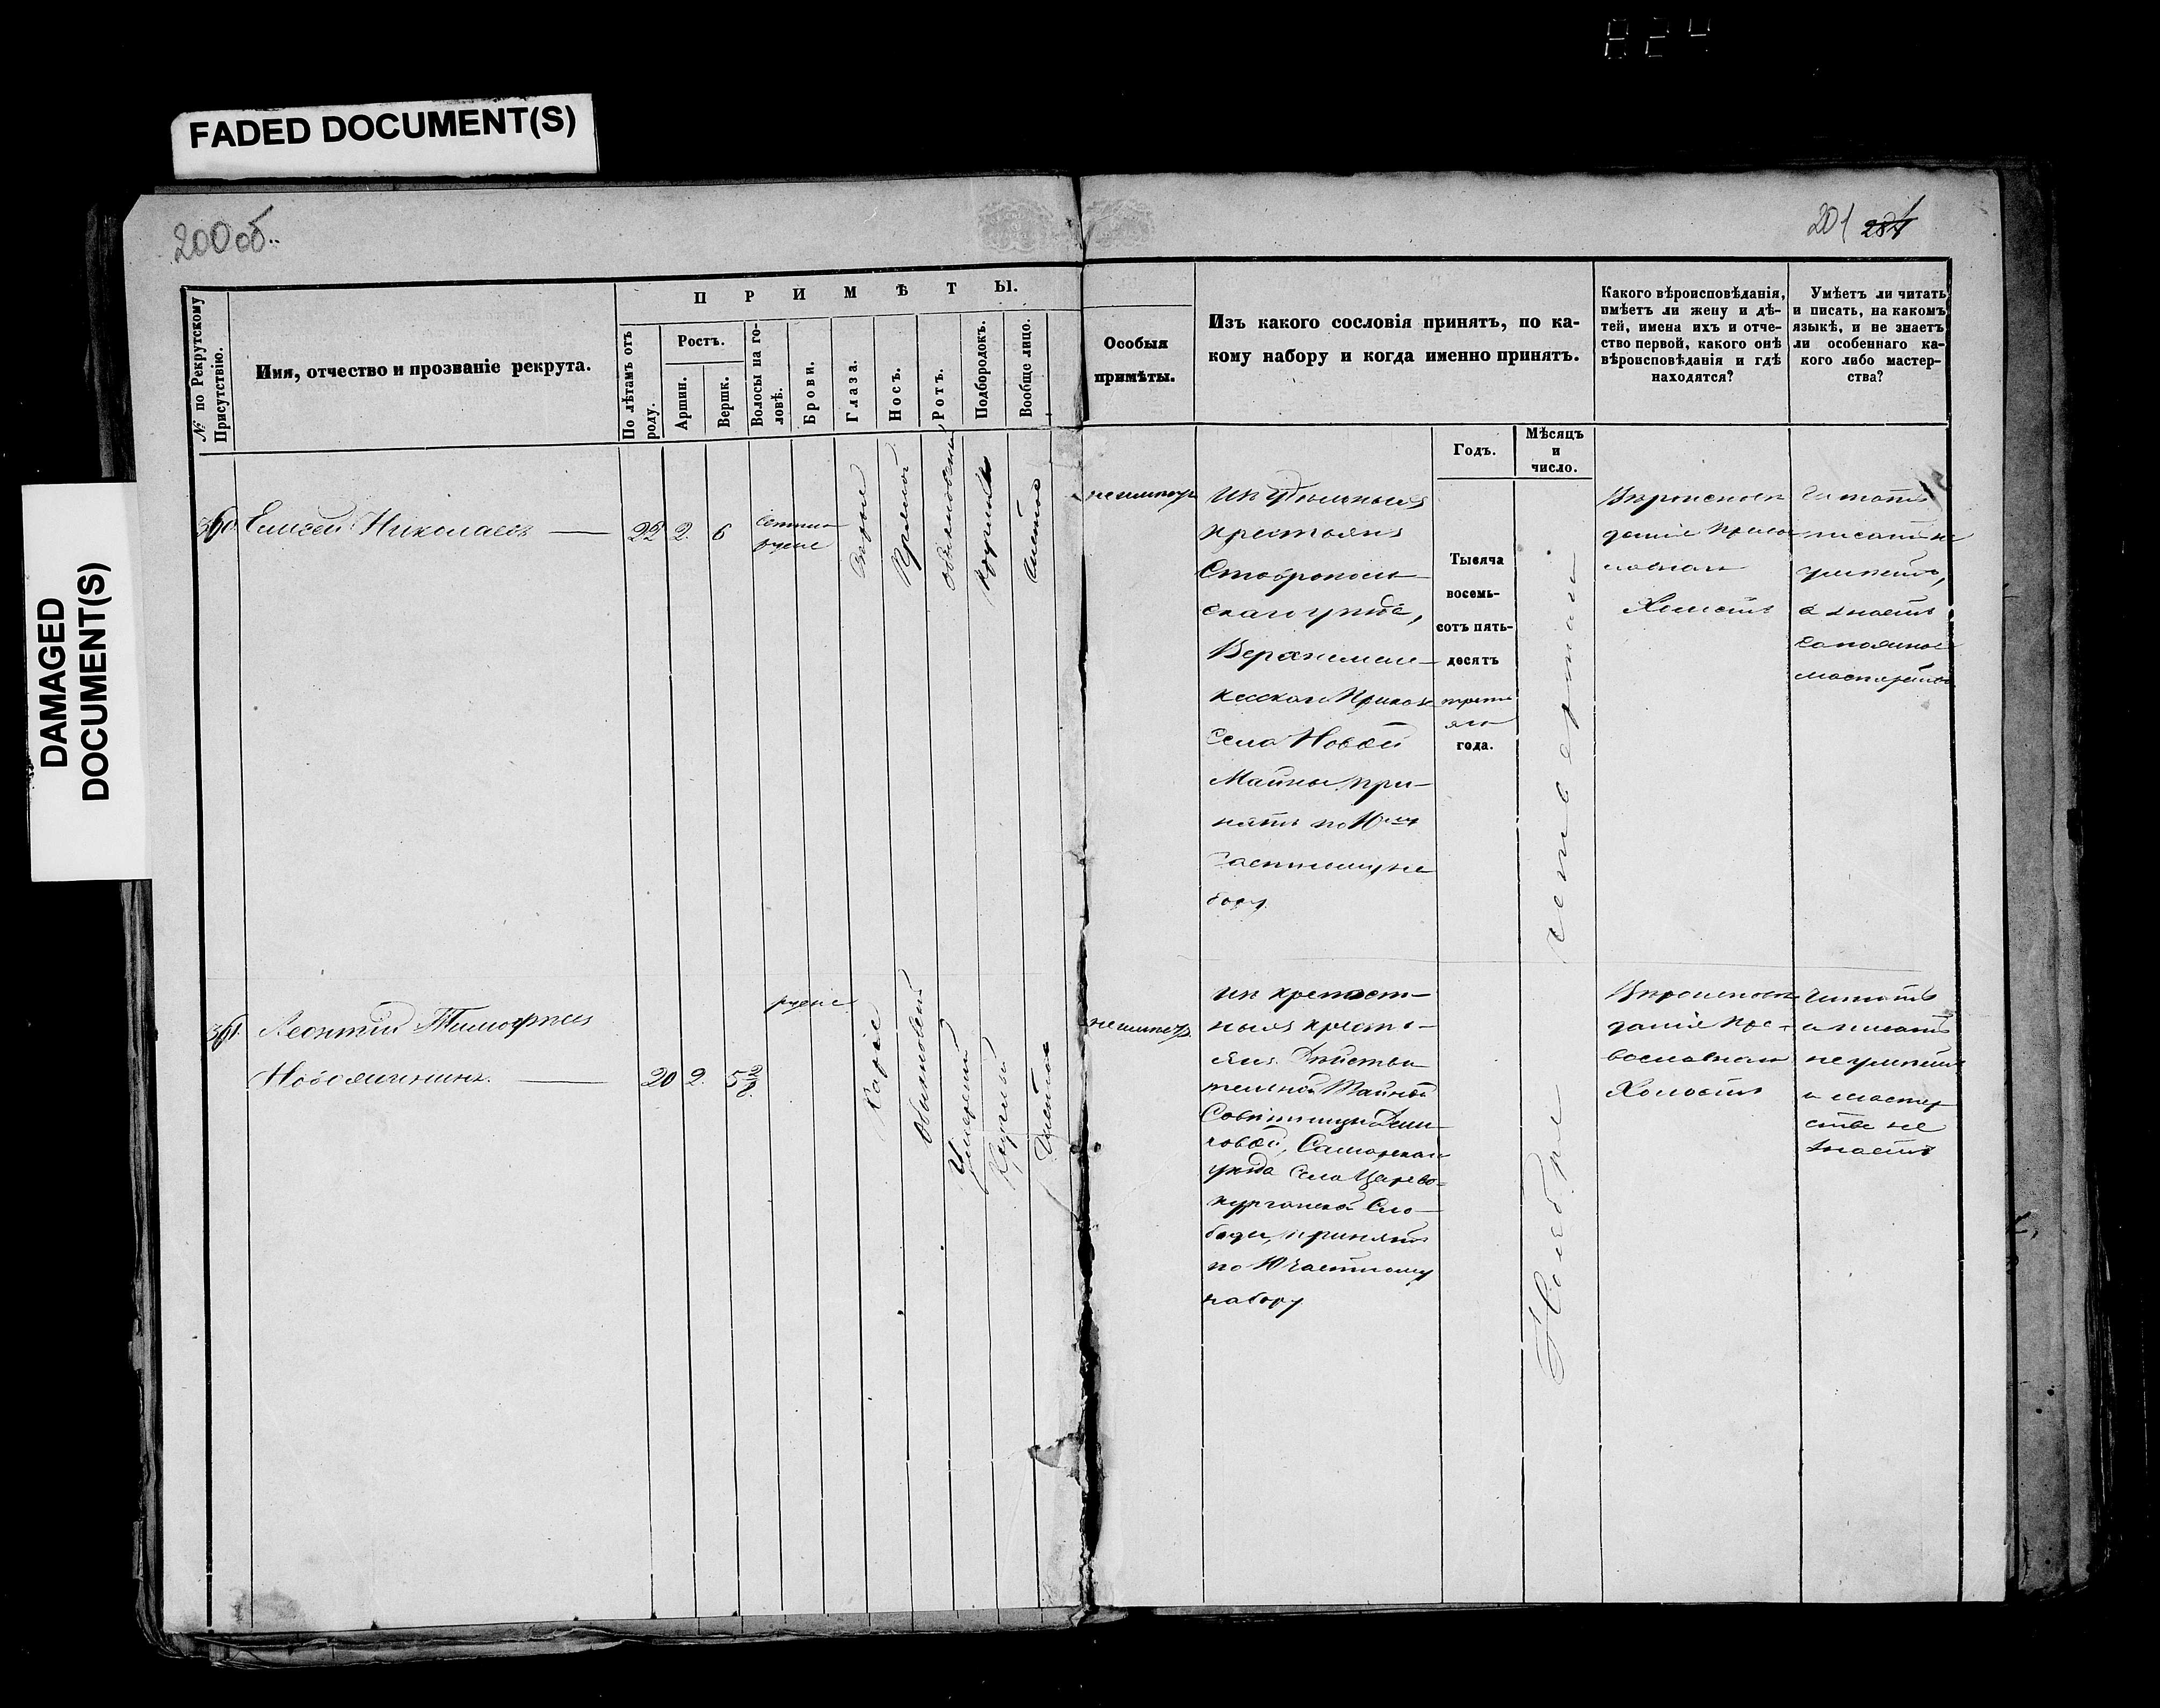 824
FADED DOCUMENT(S)
DAMAGED
DOCUMENT(S)
200об.
201 281
№ по Рекрутскому
Присутствію.
Имя, отчество и прозваніе рекрута.
ПРИМѢТЫ.
По лѣтамъ отъ
роду.
Ростъ.
Аршин.
Вершк.
Волосы на го-
ловѣ.
Брови.
Глаза.
Носъ.
Ротъ.
Подбородокъ.
Вообще лицо.
Особыя
примѣты.
Изъ какого сословія принятъ, по ка-
кому набору и когда именно принятъ.
Годъ.
Мѣсяцъ
и
число.
Какого вѣроисповѣданія,
имѣетъ ли жену и дѣ-
тей, имена ихъ и отче-
ство первой, какого онѣ
вѣроисповѣданія и гдѣ
находятся?
Умѣетъ ли читать
и писать, на какомъ
языкѣ, и не знаетъ
ли особеннаго ка-
кого либо мастер-
ства?
360. Елисей Николаевъ
22 2. 6
свѣтло
русые
сѣрые
Прямой
обыкновенный
Круглый
Чистое
неимѣетъ
изъ Удѣльныхъ
крестьянъ
Ставрополь-
скаго уѣзда,
Верхнемеле-
кесскаго Приказа
Села Новой
Майны, при-
нятъ по 10му
частному на-
бору.
Тысяча
восемь-
сотъ пять-
десятъ
третья
яго
года.
Вѣроисповѣ
даніе Право
славнаго
Холостъ
Читать
писать не
умѣетъ,
а знаетъ
сапожное
мастерство
361. Леонтій Тимофѣевъ
Новояичкинъ.
20 2. 5 2/8
русые
Каріе
обыкновенный
Умѣренный
Круглый
Чистое
неимѣетъ
изъ крѣпост-
ныхъ крестъ-
янъ Дѣйстви
тельной Тайной
Совѣтницы
Самарскаго
уѣзда Села Царево-
курганской Сло-
боды, принятъ
по 10 частному
набору
Ноября
Вѣроисповѣ
данія Пра-
вославнаго
Холостъ
Читать
и писать
неумѣетъ
и мастер
ства не
знаетъ